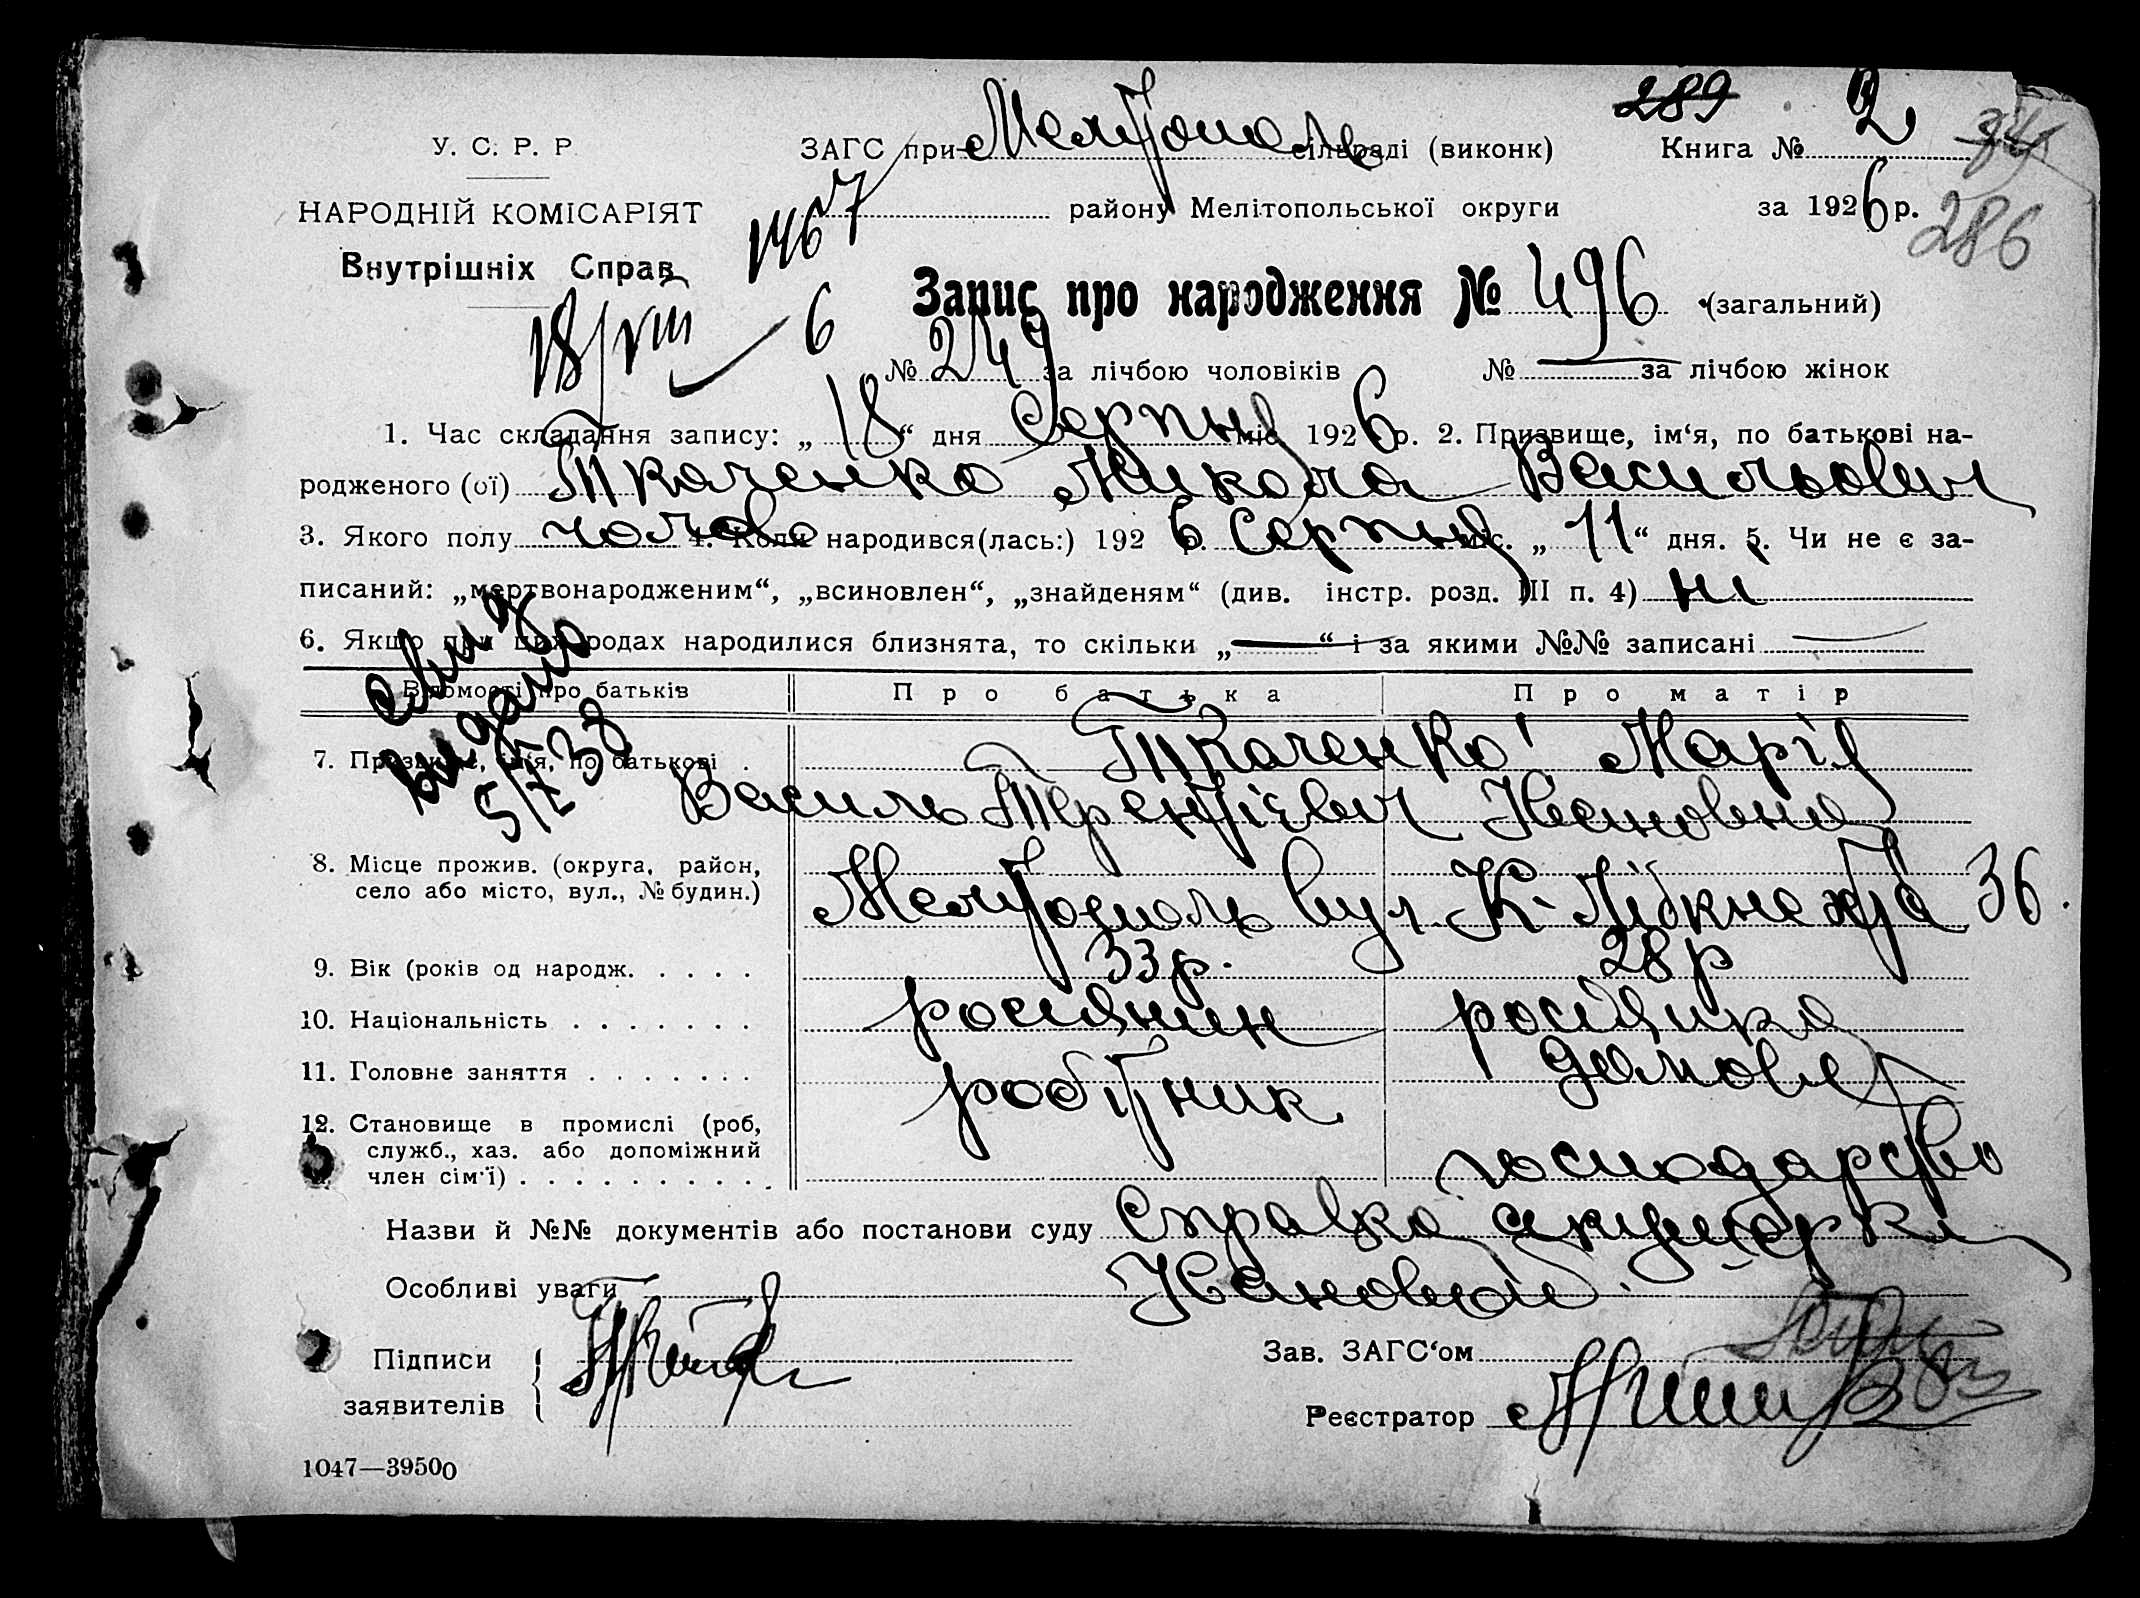 289
У. С. Р. Р.
ЗАГС при Мелітополь сільраді (виконк) Книга № 2
НАРОДНІЙ КОМІСАРІЯТ
району Мелітопольської округи за 1926 р. 286
Внутрішніх Справ
1467
Запис про народження № 496 (загальний)
18/VIII 6
№ 249 за лічбою чоловіків № — за лічбою жінок
1. Час складання запису: „18“ дня Серпня міс. 1926 р. 2. Призвище, ім‘я, по батькові на-
родженого (ої) Ткаченко Микола Васильович
3. Якого полу чолов 4. Коли народився(лась:) 1926 р. Серпня міс. „11“ дня. 5. Чи не є за-
писаний: „мертвонародженим“, „всиновлен“, „знайденям“ (див. інстр. розд. III п. 4) ні
6. Якщо при цих родах народилися близнята, то скільки „—“ і за якими №№ записані —
видано
5/I 32
Відомості про батьків Про батька Про матір
7. Призвище, ім‘я, по батькові . Ткаченко Марія
Василь Терентієвич Івановна
8. Місце прожив. (округа, район,
село або місто, вул., № будин.) Мелітополь вул. К. Лібкнехта 36.
9. Вік (років од народж. . . . . 33 р. 28 р
10. Національність . . . . . . . росіянин росіянка
11. Головне заняття . . . . . . . робітник домове
12. Становище в промислі (роб,
служб., хаз. або допоміжний
член сім‘ї) . . . . . . . . . . господарство
Назви й №№ документів або постанови суду Справка акушерки
Особливі уваги Івановой.
Підписи
заявителів
Зав. ЗАГС‘ом
Реєстратор
1047—39500